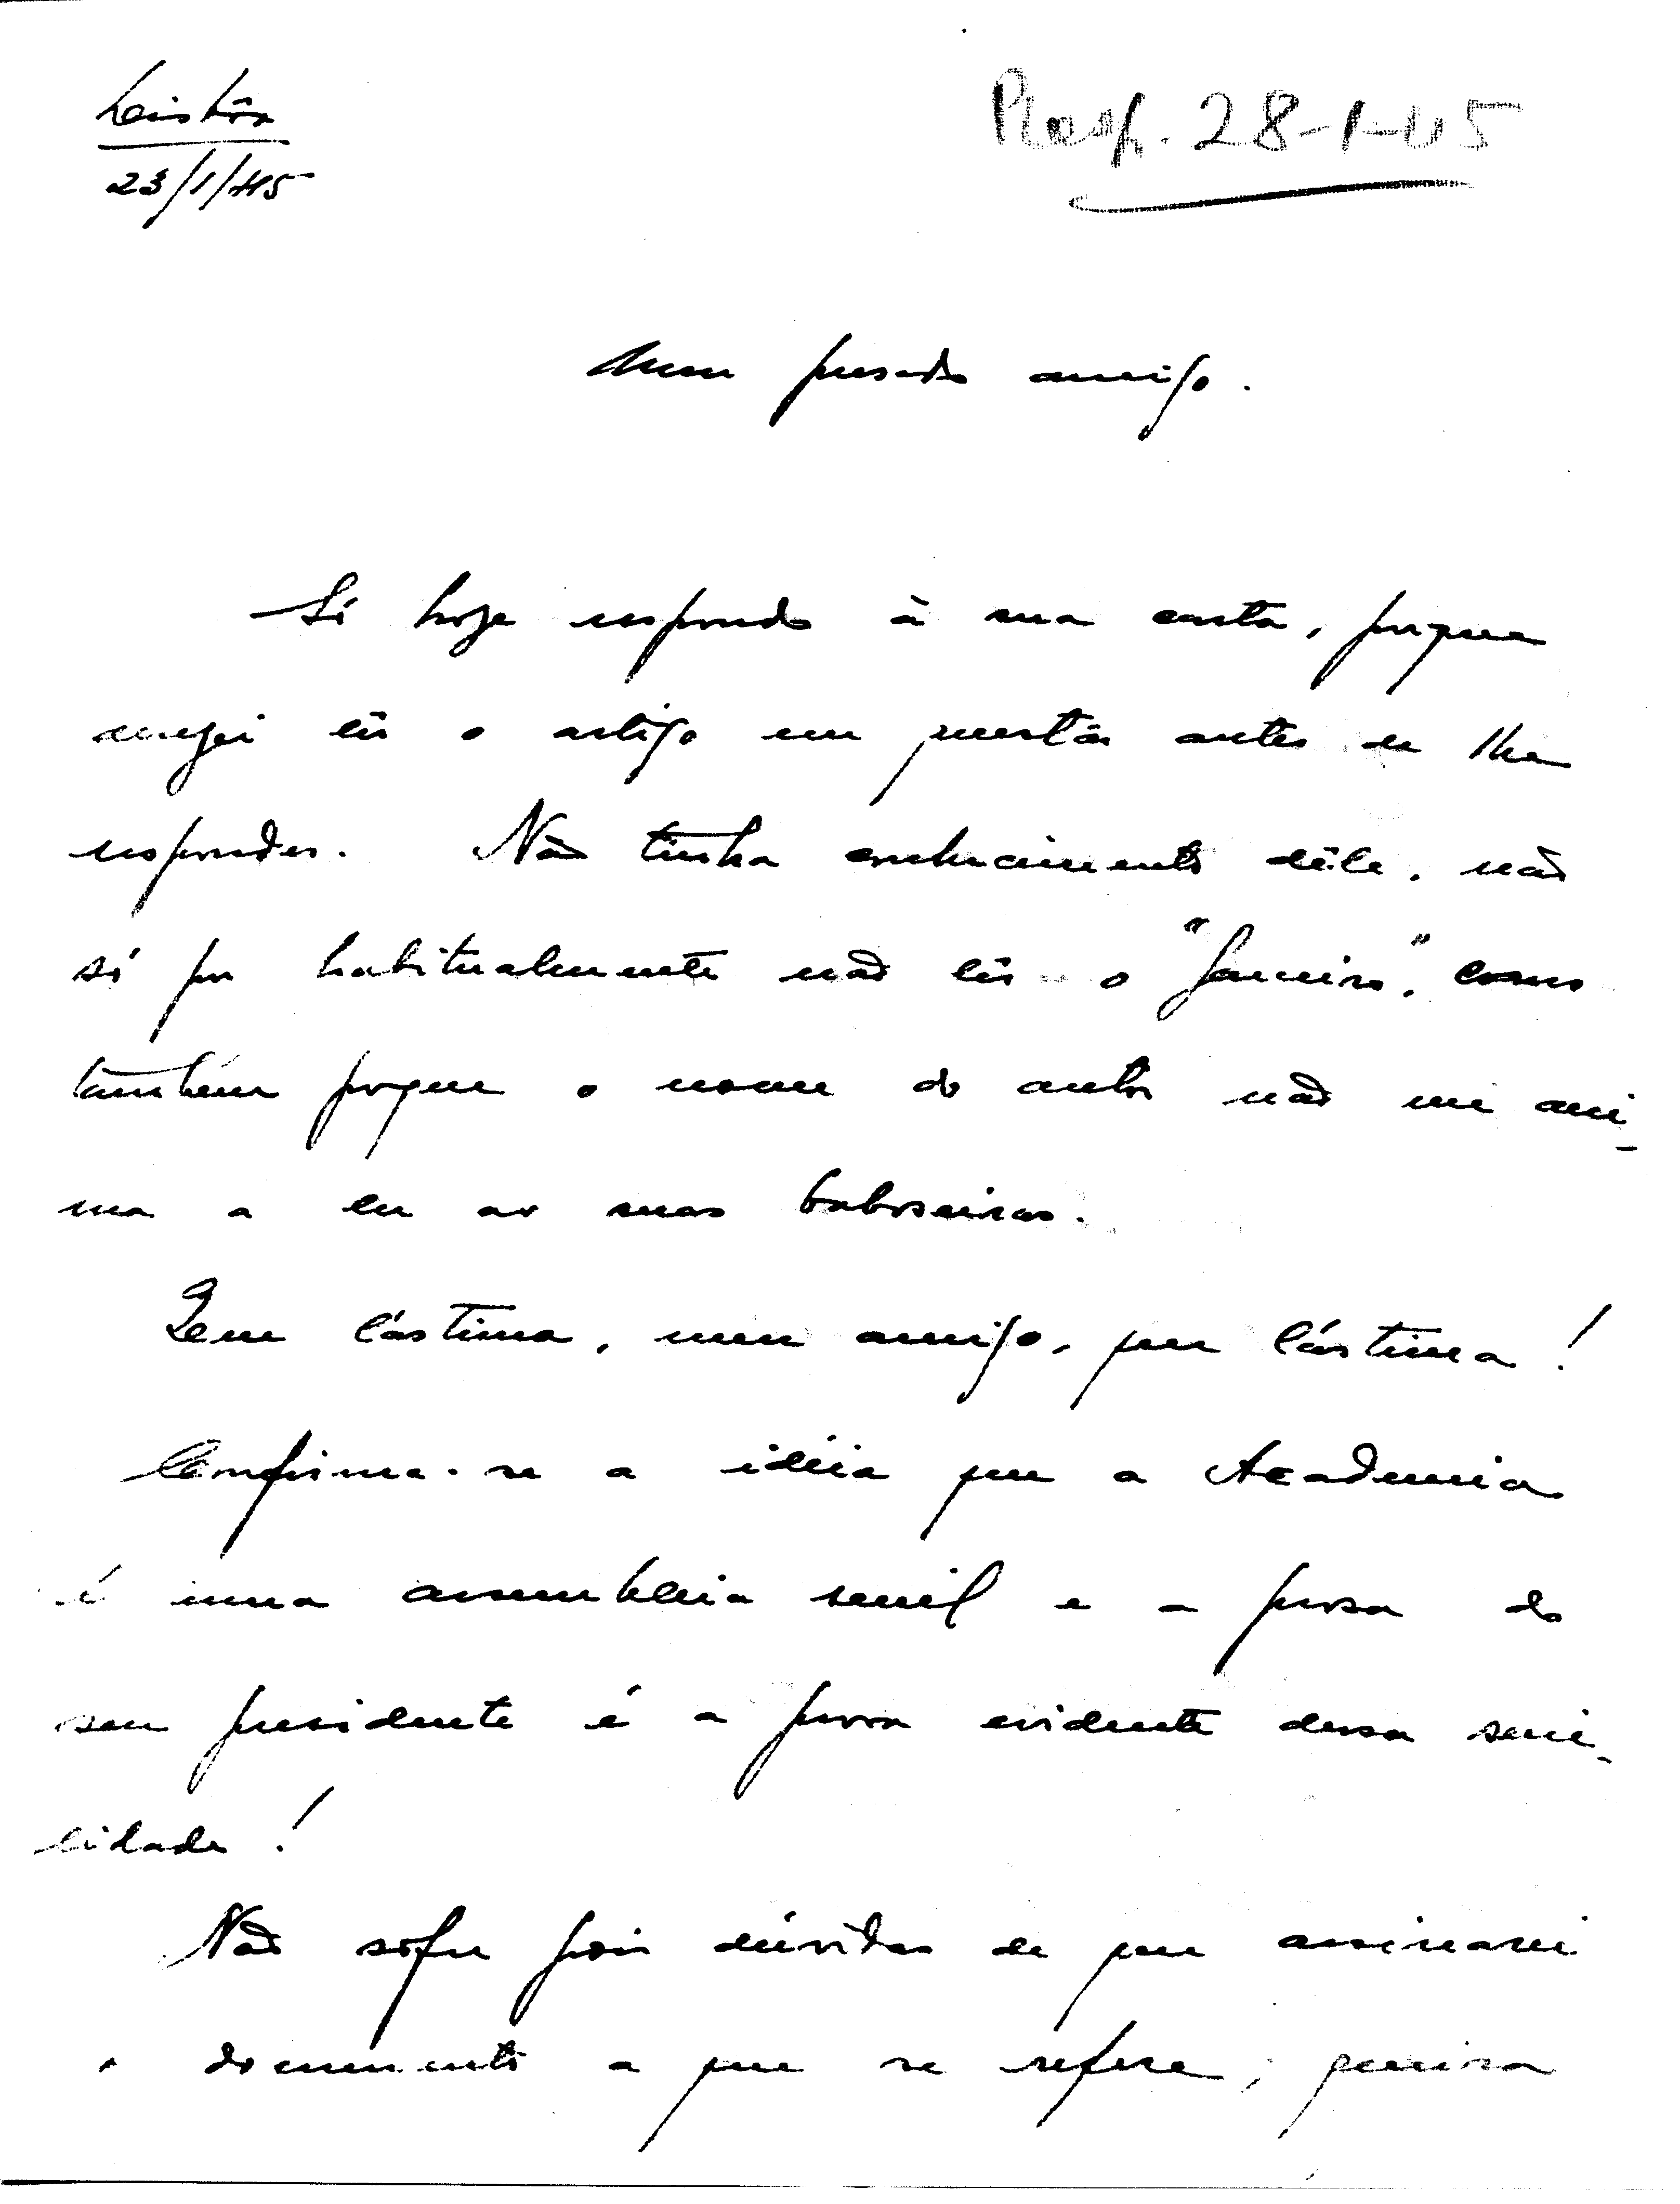 Lisbôa
23/1/45
Resp. 28-1-45
Meu prezado amigo.
Só hoje respondo à sua carta, porque
quis lêr o artigo em questão antes de lhe
responder. Não tinha conhecimento dêle, não
só por habitualmente não lêr o "Janeiro", como
também porque o nome do autor não me ani-
ma a ler as suas baboseiras.
Que lástima, meu amigo, que lástima!
Confirma-se a idéia que a Academia
é uma assembleia senil e a prosa do
seu presidente é a prova evidente dessa seni-
lidade!
Não sofre pois dúvidas de que assinarei
o documento a que se refere; queira